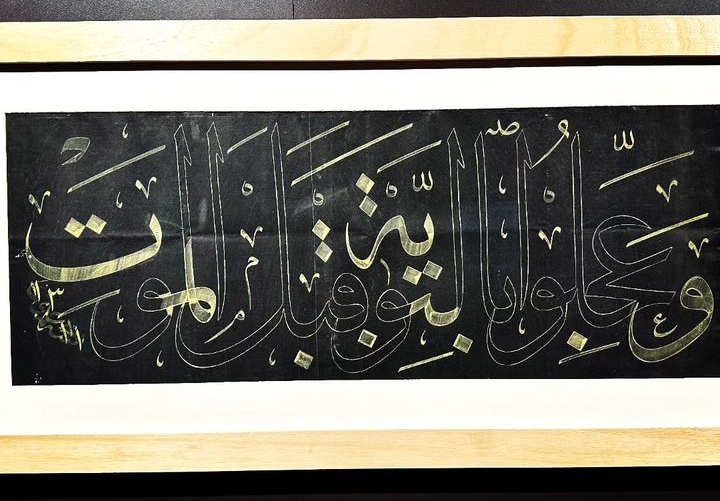 وعجلوا بالتوبة قبل الموت